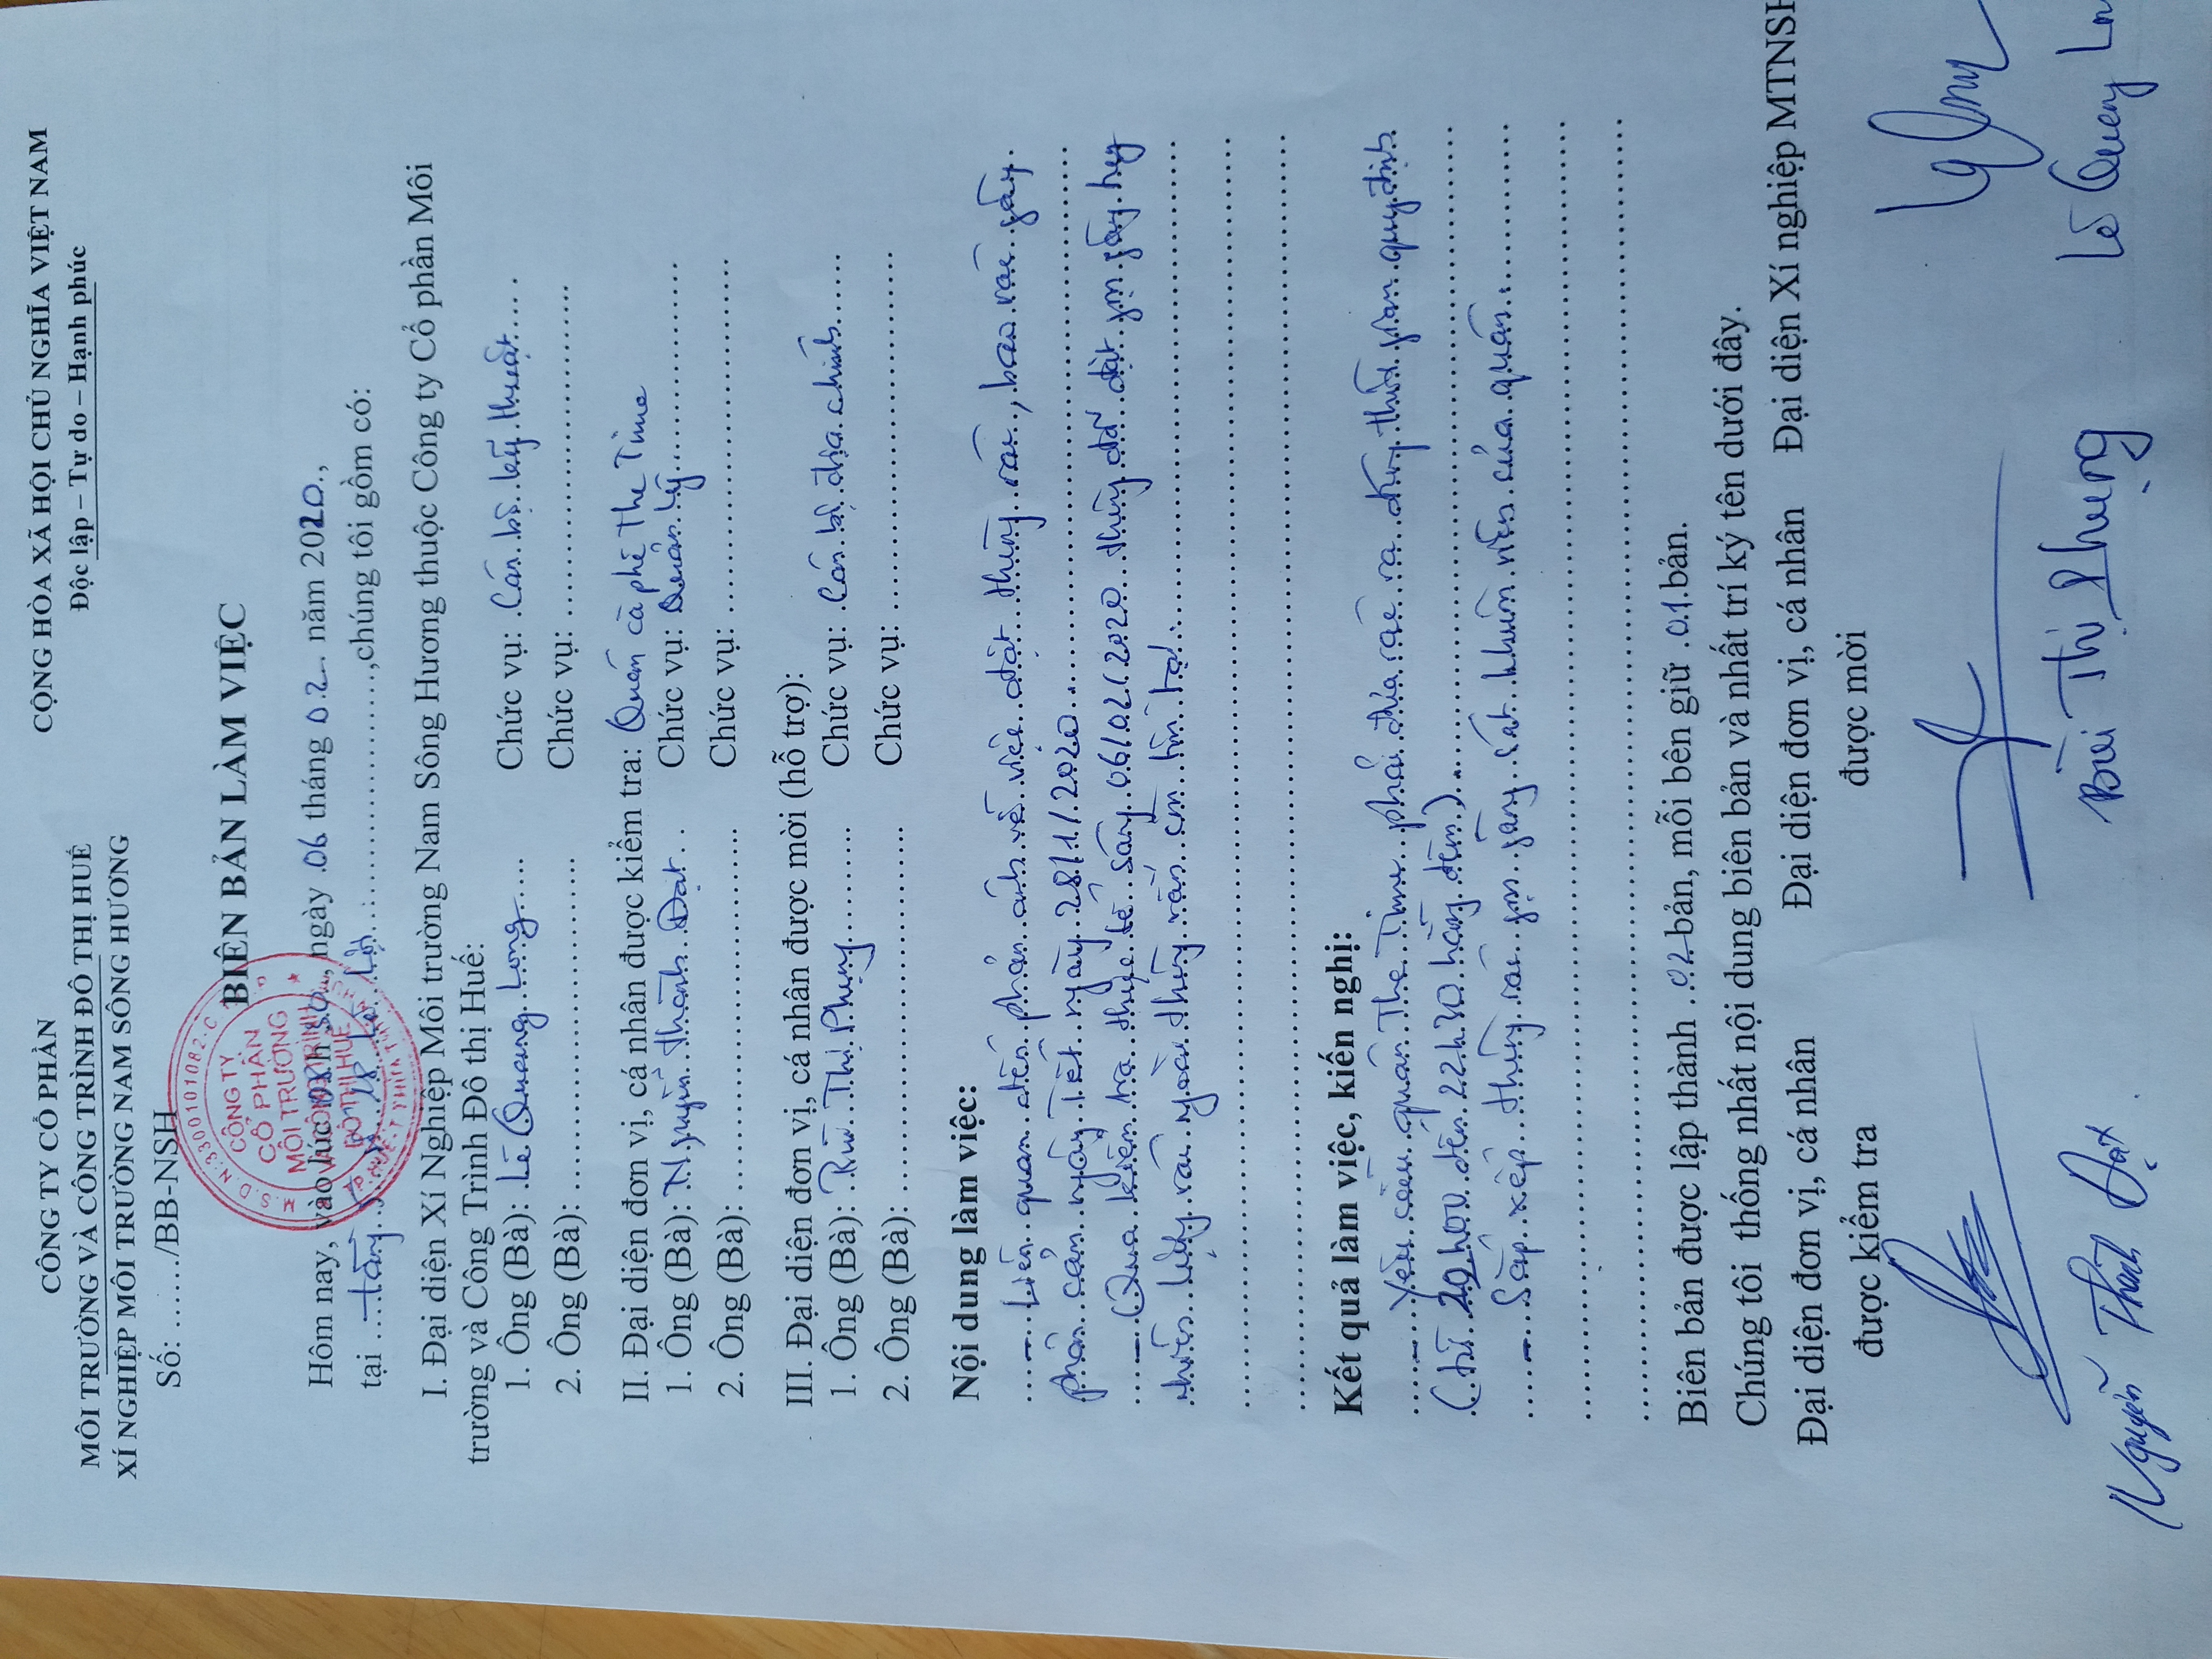 CÔNG TY CỔ PHẦN
MÔI TRƯỜNG VÀ CÔNG TRÌNH ĐÔ THỊ HUẾ
XÍ NGHIỆP MÔI TRƯỜNG NAM SÔNG HƯƠNG
Số: ......./BB-NSH
CỘNG HÒA XÃ HỘI CHỦ NGHĨA VIỆT NAM
Độc lập – Tự do – Hạnh phúc
BIÊN BẢN LÀM VIỆC
S.Đ.D.N:3300101082-C
CÔNG TY
CỔ PHẦN
MÔI TRƯỜNG
VÀ CÔNG TRÌNH
ĐÔ THỊ HUẾ
Hôm nay, vào lúc 08h30, ngày 06 tháng 02 năm 2020,
tại ... 18 Lê Lợi ..., chúng tôi gồm có:
I. Đại diện Xí Nghiệp Môi trường Nam Sông Hương thuộc Công ty Cổ phần Môi
trường và Công Trình Đô thị Huế:
1. Ông (Bà): Lê Quang Long..... Chức vụ: Cán bộ kỹ thuật....
2. Ông (Bà): .............................. Chức vụ: ..............................
II. Đại diện đơn vị, cá nhân được kiểm tra: Quán cà phê The Time
1. Ông (Bà): Nguyễn Thành Đạt.. Chức vụ: Quản lý..................
2. Ông (Bà): .............................. Chức vụ: ..............................
III. Đại diện đơn vị, cá nhân được mời (hỗ trợ):
1. Ông (Bà): Bùi Thị Phụng.......... Chức vụ: Cán bộ địa chính.......
2. Ông (Bà): .............................. Chức vụ: ..............................
Nội dung làm việc:
- Liên quan đến phản ánh về việc đặt thùng rác, bao rác gây
phản cảm ngày Tết ngày 28/1/2020
- Qua kiểm tra thực tế sáng 06/02/2020 thùng đã đặt gọn gàng tuy
nhiên lượng rác ngoài thùng vẫn còn tồn tại.
Kết quả làm việc, kiến nghị:
- Yêu cầu quán The Time phải đưa rác ra đúng thời gian quy định
(từ 20h00 đến 22h30 hằng đêm)
- Sắp xếp thùng rác gọn gàng sát khuôn viên của quán.
Biên bản được lập thành 02 bản, mỗi bên giữ 01 bản.
Chúng tôi thống nhất nội dung biên bản và nhất trí ký tên dưới đây.
Đại diện đơn vị, cá nhân Đại diện đơn vị, cá nhân Đại diện Xí nghiệp MTNSH
được kiểm tra được mời
Nguyễn Thành Đạt Bùi Thị Phụng Lê Quang Lon